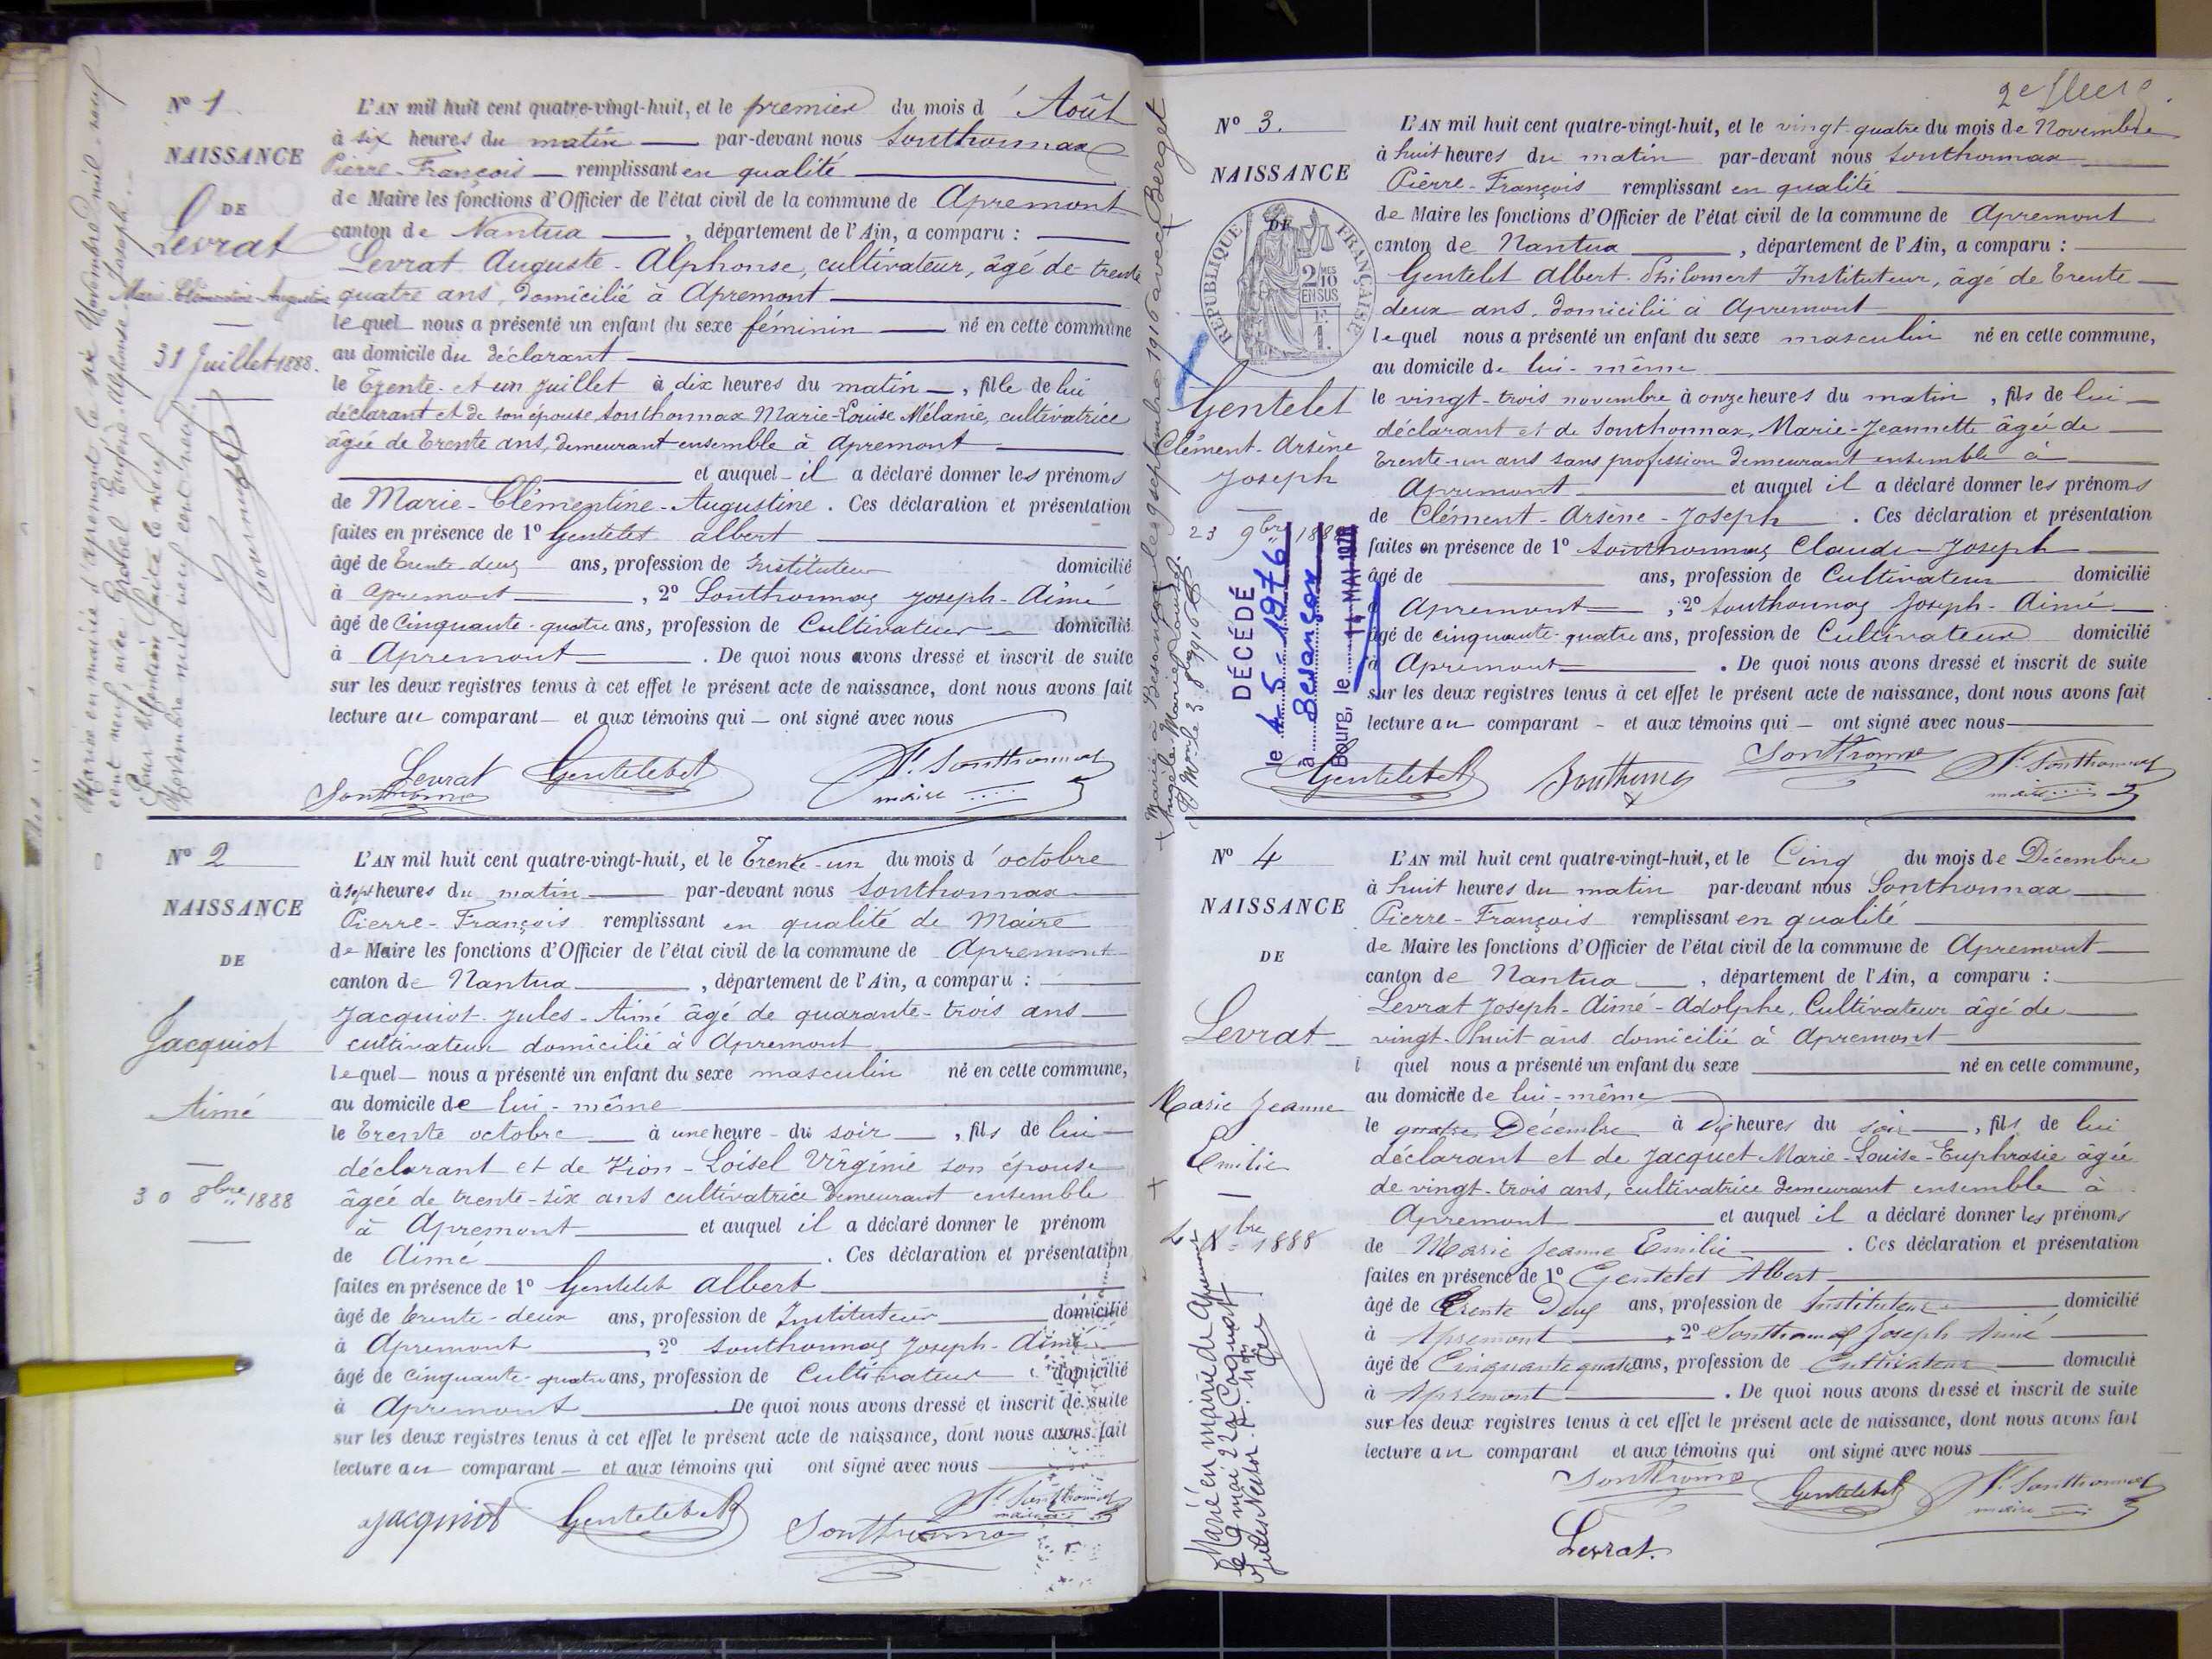 N° 1
NAISSANCE
DE
Levrat
Marie Clémentine Augustine
31 Juillet 1888.
Mariée en mairie d'apremont le six Novembre mil neuf
cent neuf avec Eugène Alphonse Joseph
Pour mention faite le neuf
Novembre mil neuf cent neuf
L'AN mil huit cent quatre-vingt-huit, et le premier du mois d'Août
à six heures du matin par-devant nous Sonthonnax
Pierre-François remplissant en qualité
de Maire les fonctions d'Officier de l'état civil de la commune de Apremont
canton de Nantua, département de l'Ain, a comparu :
Levrat Auguste-Alphonse, cultivateur, âgé de trente
quatre ans, domicilié à Apremont
lequel nous a présenté un enfant du sexe féminin né en cette commune
au domicile du déclarant
le trente-et-un juillet à dix heures du matin, fille de lui
déclarant et de son épouse Sonthonnax Marie-Louise Mélanie, cultivatrice
âgée de trente ans, demeurant ensemble à Apremont
et auquel il a déclaré donner les prénoms
de Marie-Clémentine-Augustine. Ces déclaration et présentation
faites en présence de 1° Gentelet albert
âgé de trente-deux ans, profession de Instituteur domicilié
à Apremont, 2° Sonthonnax Joseph-Aimé
âgé de cinquante-quatre ans, profession de Cultivateur domicilié
à Apremont. De quoi nous avons dressé et inscrit de suite
sur les deux registres tenus à cet effet le présent acte de naissance, dont nous avons fait
lecture au comparant et aux témoins qui ont signé avec nous
Levrat Gentelet P. Sonthonnax
Sonthonnax maire
N° 2
NAISSANCE
DE
Jacquiot
Aimé
30 8bre 1888
L'AN mil huit cent quatre-vingt-huit, et le Trente-un du mois d'octobre
à sept heures du matin par-devant nous Sonthonnax
Pierre-François remplissant en qualité de Maire
de Maire les fonctions d'Officier de l'état civil de la commune de Apremont
canton de Nantua, département de l'Ain, a comparu :
Jacquiot Jules-Aimé âgé de quarante-trois ans
cultivateur domicilié à Apremont
lequel nous a présenté un enfant du sexe masculin né en cette commune,
au domicile de lui-même
le trente octobre à une heure du soir, fils de lui
déclarant et de Vion-Loisel Virginie son épouse
âgée de trente-six ans cultivatrice demeurant ensemble
à Apremont et auquel il a déclaré donner le prénom
de Aimé. Ces déclaration et présentation
faites en présence de 1° Gentelet albert
âgé de trente-deux ans, profession de Instituteur domicilié
à Apremont, 2° Sonthonnax Joseph-Aimé
âgé de cinquante-quatre ans, profession de Cultivateur domicilié
à Apremont De quoi nous avons dressé et inscrit de suite
sur les deux registres tenus à cet effet le présent acte de naissance, dont nous avons fait
lecture au comparant et aux témoins qui ont signé avec nous
Jacquiot Gentelet Sonthonnax P. Sonthonnax
maire
N° 3.
NAISSANCE
DE
RÉPUBLIQUE FRANÇAISE
2/10 MES
EN SUS
Gentelet
Clément-Arsène
Joseph
23 9bre 1888
Marié à Besançon le 9 septembre 1916 avec Berget
Angèle Marie
DÉCÉDÉ
le 4-5-1976
à Besançon
Bourg, le 14 MAI 1976
L'AN mil huit cent quatre-vingt-huit, et le vingt-quatre du mois de Novembre
à huit heures du matin par-devant nous Sonthonnax
Pierre-François remplissant en qualité
de Maire les fonctions d'Officier de l'état civil de la commune de Apremont
canton de Nantua, département de l'Ain, a comparu :
Gentelet Albert-Philomert Instituteur, âgé de trente
deux ans, domicilié à Apremont
lequel nous a présenté un enfant du sexe masculin né en cette commune,
au domicile de lui-même
le vingt-trois novembre à onze heures du matin, fils de lui
déclarant et de Sonthonnax, Marie-Jeannette âgée de
trente-un ans sans profession demeurant ensemble à
Apremont et auquel il a déclaré donner les prénoms
de Clément-Arsène-Joseph. Ces déclaration et présentation
faites en présence de 1° Sonthonnax Claude-Joseph
âgé de ans, profession de Cultivateur domicilié
à Apremont, 2° Sonthonnax Joseph-Aimé
âgé de cinquante-quatre ans, profession de Cultivateur domicilié
à Apremont. De quoi nous avons dressé et inscrit de suite
sur les deux registres tenus à cet effet le présent acte de naissance, dont nous avons fait
lecture au comparant et aux témoins qui ont signé avec nous
Gentelet Sonthonnax Sonthonnax P. Sonthonnax
maire
N° 4
NAISSANCE
DE
Levrat
Marie Jeanne
Emilie
4 Xbre 1888
Marié en mairie de Apremont
le 9 mai 22
Jules Nestor
L'AN mil huit cent quatre-vingt-huit, et le Cinq du mois de Décembre
à huit heures du matin par-devant nous Sonthonnax
Pierre-François remplissant en qualité
de Maire les fonctions d'Officier de l'état civil de la commune de Apremont
canton de Nantua, département de l'Ain, a comparu :
Levrat Joseph-Aimé-Adolphe, Cultivateur âgé de
vingt-huit ans domicilié à Apremont
quel nous a présenté un enfant du sexe né en cette commune,
au domicile de lui-même
le quatre Décembre à Dix heures du soir, fils de lui
déclarant et de Jacquet Marie-Louise-Euphrasie âgée
de vingt-trois ans, cultivatrice demeurant ensemble à
Apremont et auquel il a déclaré donner les prénoms
de Marie Jeanne Emilie. Ces déclaration et présentation
faites en présence de 1° Gentelet Albert
âgé de trente Deux ans, profession de Instituteur domicilié
à Apremont, 2° Sonthonnax Joseph Aimé
âgé de Cinquante quatre ans, profession de Cultivateur domicilié
à Apremont. De quoi nous avons dressé et inscrit de suite
sur les deux registres tenus à cet effet le présent acte de naissance, dont nous avons fait
lecture au comparant et aux témoins qui ont signé avec nous
Sonthonnax Gentelet P. Sonthonnax
maire
Levrat.